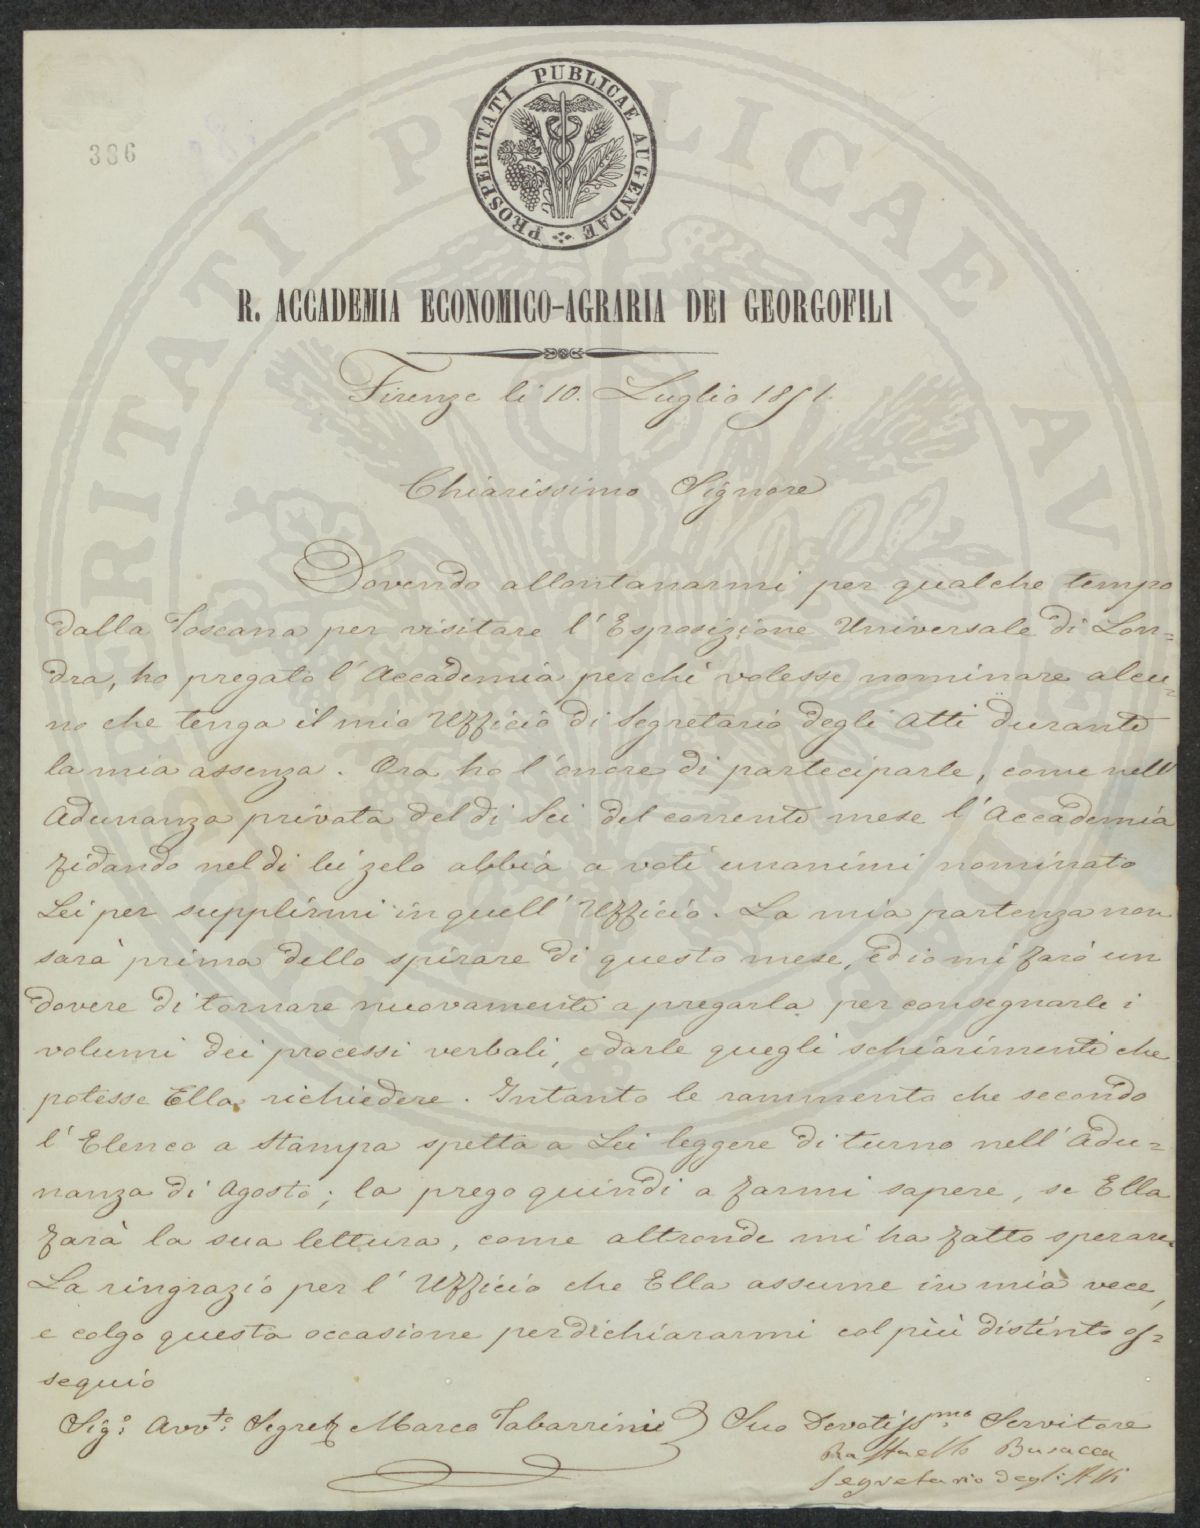 PROSPERITATI PUBLICAE AUGENDAE
386
R. ACCADEMIA ECONOMICO-AGRARIA DEI GEORGOFILI
Firenze li 10. Luglio 1851.
Chiarissimo Signore
Dovendo allontanarmi per qualche tempo
dalla Toscana per visitare l'Esposizione Universale di Lon=
dra, ho pregato l'Accademia perchè volesse nominare alcu=
no che tenga il mio Ufficio di Segretario degli Atti durante
la mia assenza. Ora ho l'onore di parteciparle, come nell'
Adunanza privata del dì Sei del corrente mese l'Accademia
fidando nel di lei zelo abbia a voti unanimi nominato
Lei per supplirmi in quell'Ufficio. La mia partenza non
sarà prima dello spirare di questo mese, ed io mi farò un
dovere di tornare nuovamente a pregarla per consegnarle i
volumi dei processi verbali, e darle quegli schiarimenti che
potesse Ella richiedere. Intanto le rammento che secondo
l'Elenco a Stampa spetta a Lei leggere di turno nell'Adu=
nanza di Agosto; la prego quindi a farmi sapere, se Ella
farà la sua lettura, come altronde mi ha fatto sperare.
La ringrazio per l'Ufficio che Ella assume in mia vece,
e colgo questa occasione per dichiararmi col più distinto os=
sequio
Sig.e Avv.to Segret. Marco Tabarrini Suo Devotiss.mo Servitore
Raffaello Busacca
Segretario degli Atti